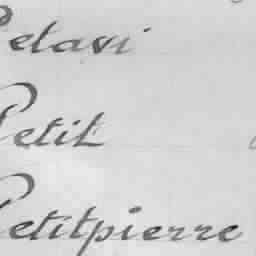 Pelavi
Petit
Petitpierre